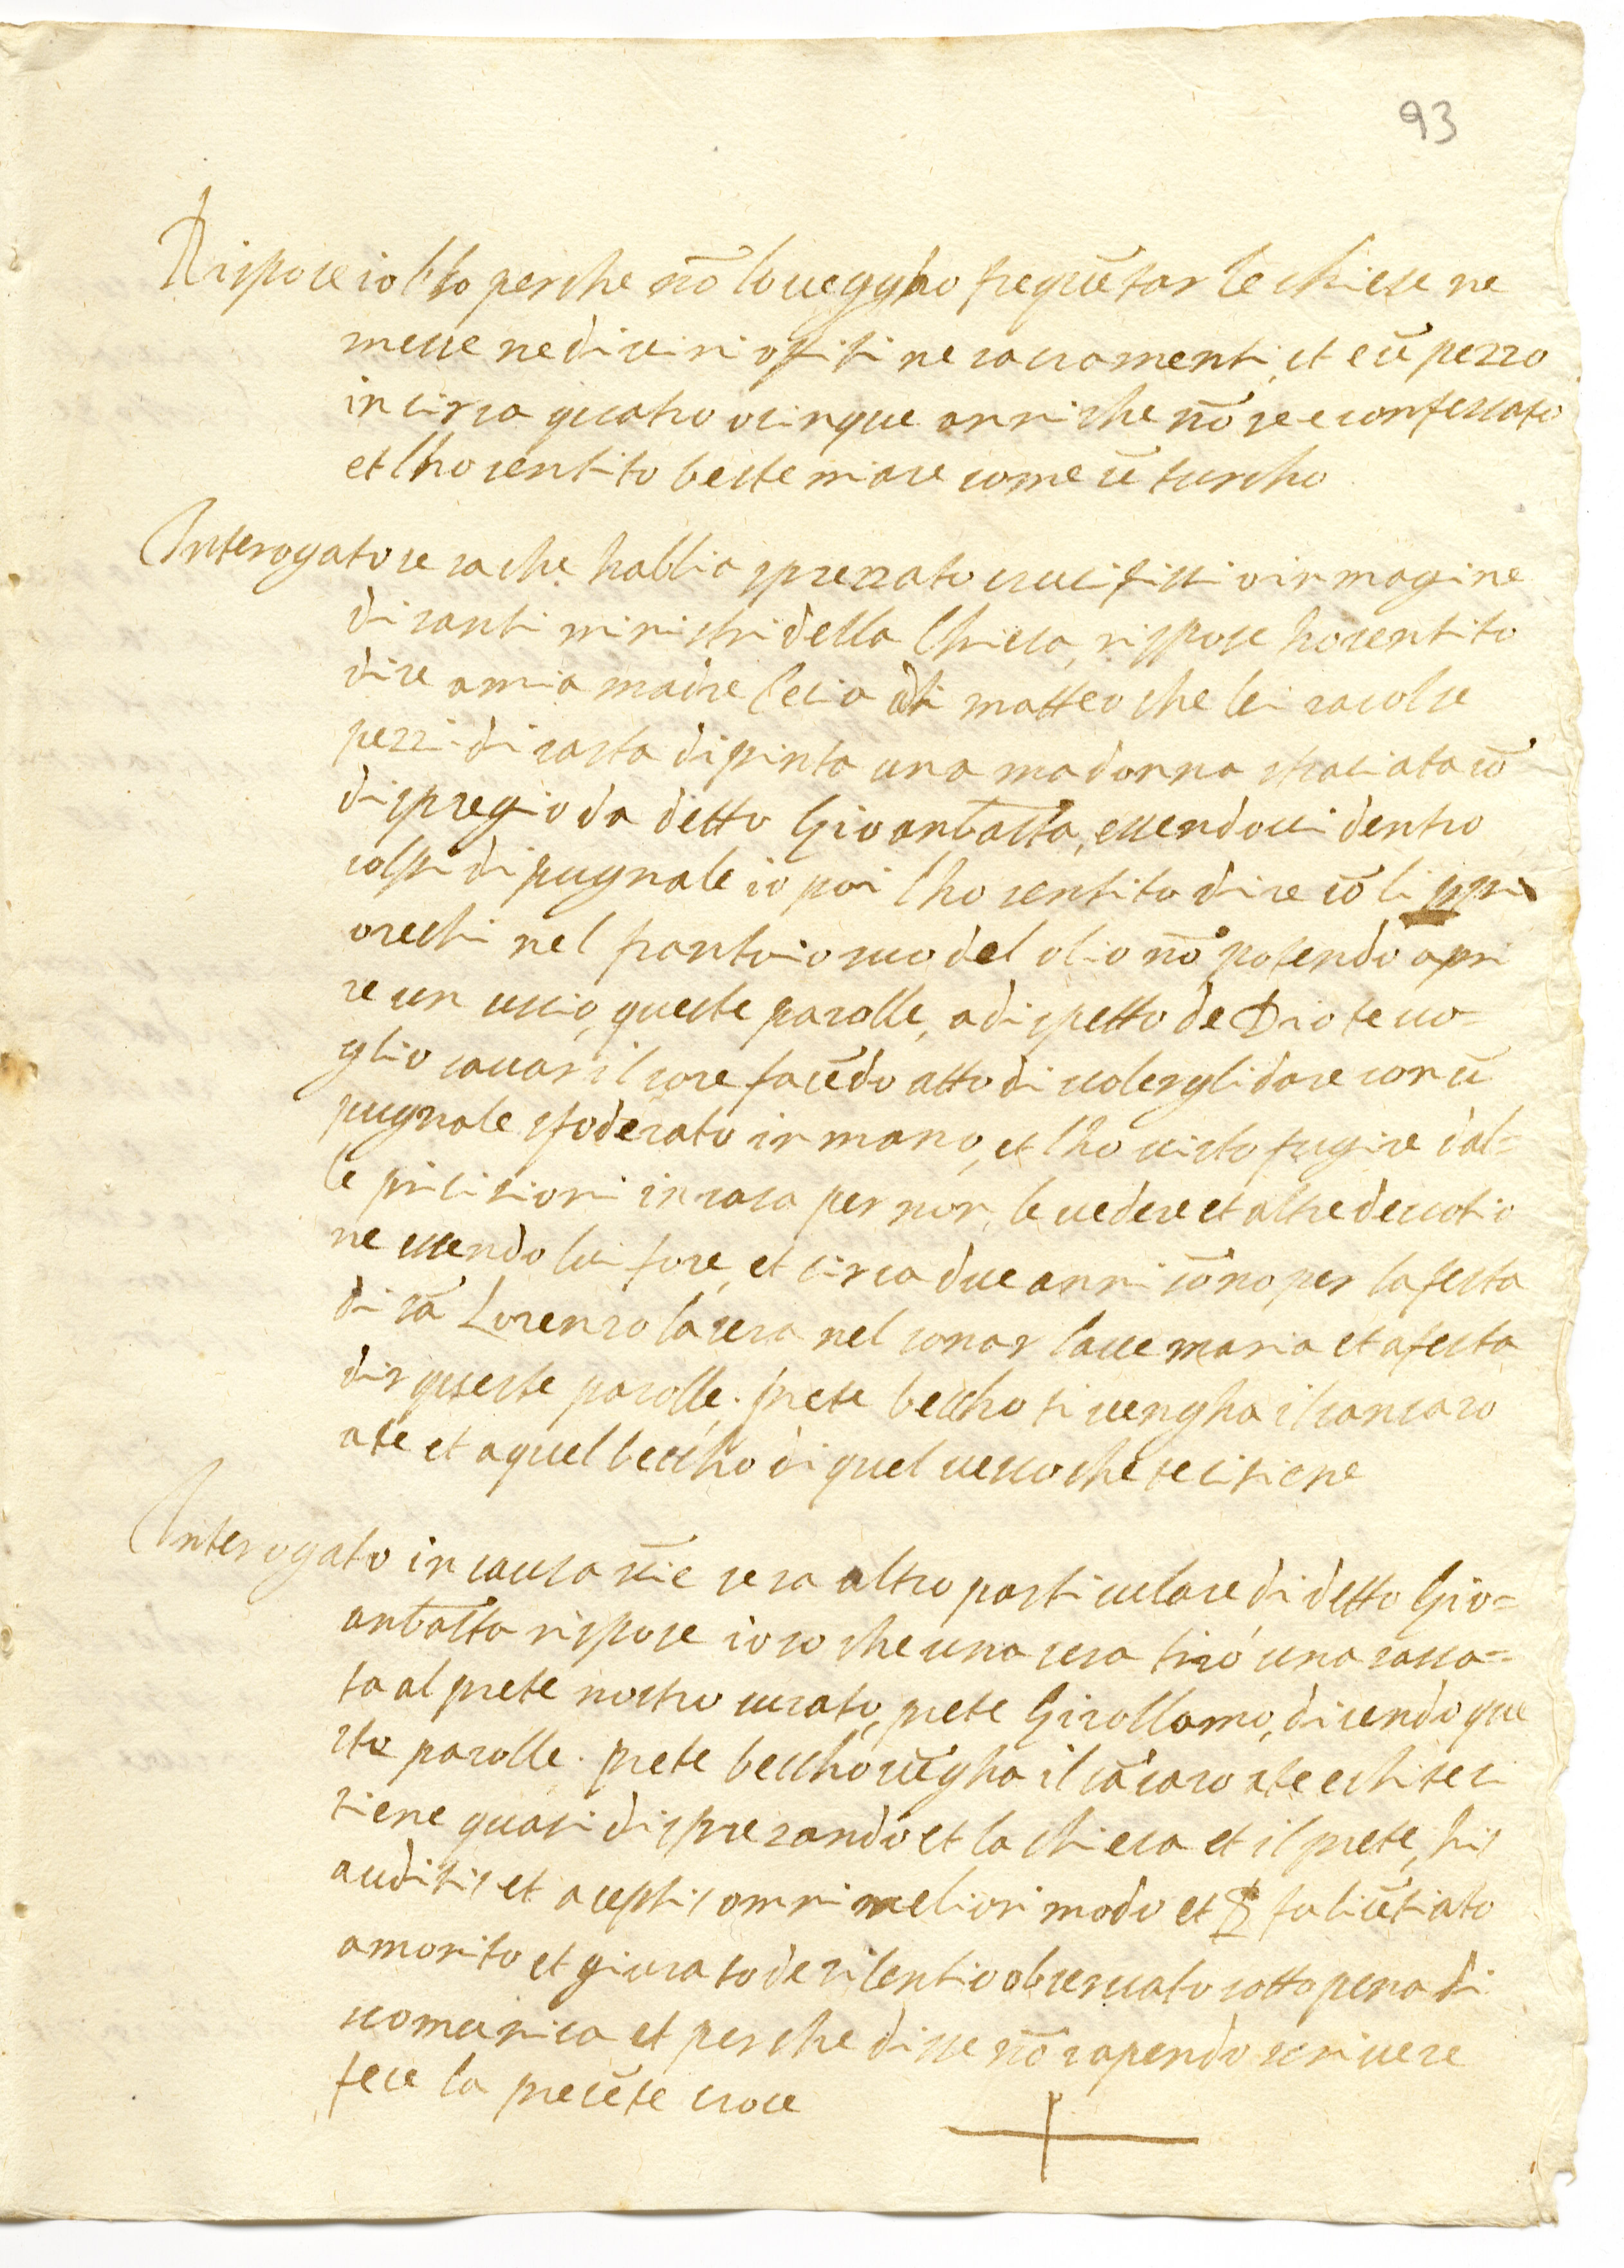 93
Rispose io lo so perche nō lo vegglo frequētar le chiese ne
messe ne divini ofitii ne sacramenti, et e ū pezzo
in circa quatro o cinque anni che nō se e confessato
et lho sentito bestemiare come ū turcho
Interogato se sa che habbia sprezzato crucifissi o inmagine
di santi ministri della Chiesa, rispose ho sentito
dire a mia madre Lecia di matteo che lei racolse
pezzi di carta dipinta una madonna straciata cō
dispregio da detto Giovanbatta, essendovi dentro
colpi di pugnale io poi lho sentito dire cō li ppri
orechi nel frantoio suo del olio nō potendo apri
re un uscio, queste parolle, a dispetto de Dio te vo=
glio cavar il core facēdo atto di volergli dare con ū
pugnale sfoderato in mano, et lho visto fugire dal=
le pricisioni in casa per non le vedere et altre devotio
ne essendo lui fore, et circa due anni sōno per la festa
di sā Lorenzo la sera nel sonar lave maria et a festa
dir queste parolle. prete beccho ti vengha il cancaro
a te et a quel beccho di quel vesco che te ci tiene
Interogato in causa sciē se sa altro particulare di detto Gio=
anbatta rispose io so che una sera tirò una sassa=
ta al prete nostro curato, prete Girollamo, dicendo que
ste parolle. prete beccho vēgha il cācaro a te e chi te ci
tiene quasi disprezando et la chiesa et il prete, his
auditis et aceptis omni meliori modo et fu licētiato
amonito et giurato de silentio observato sotto pena di
scomunica et perche disse nō sapendo scrivere
fece la presēte croce